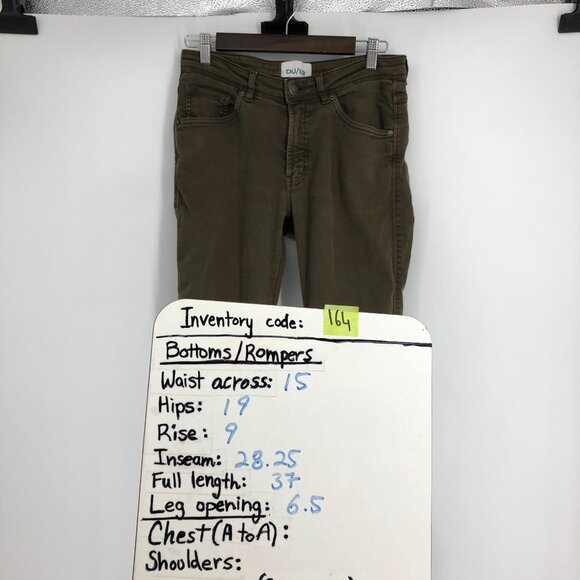 DU/ER
Inventory code: 164
Bottoms/Rompers
Waist across: 15
Hips: 19
Rise: 9
Inseam: 28.25
Full length: 37
Leg opening: 6.5
Chest (A to A):
Shoulders: